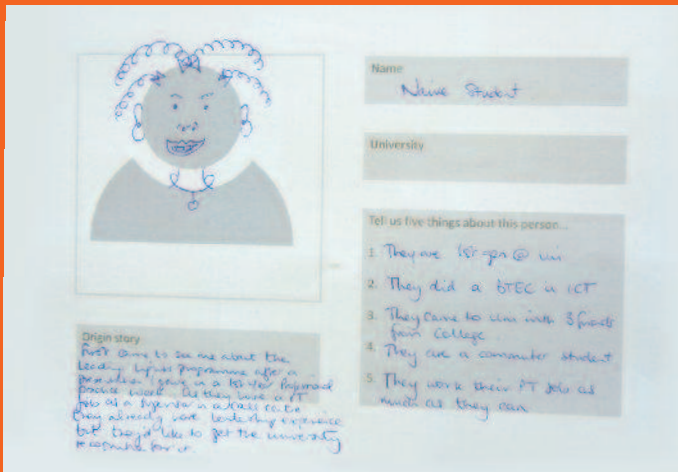 Name
Naive Student
University
Tell us five things about this person...
1. They are 1st gen @ uni
2. They did a BTEC in ICT
3. They came to uni with 3 friends
from College
4. They are a commuter student
5. They work their PT job as
much as they can
Origin story
First came to see me about the
Leading programme after a
presentation I gave in a 1st year Professional
Practice work. As they have a PT
job as a supervisor in a call centre
they already have leadership experience
but they'd like to get the university
recognition for it.